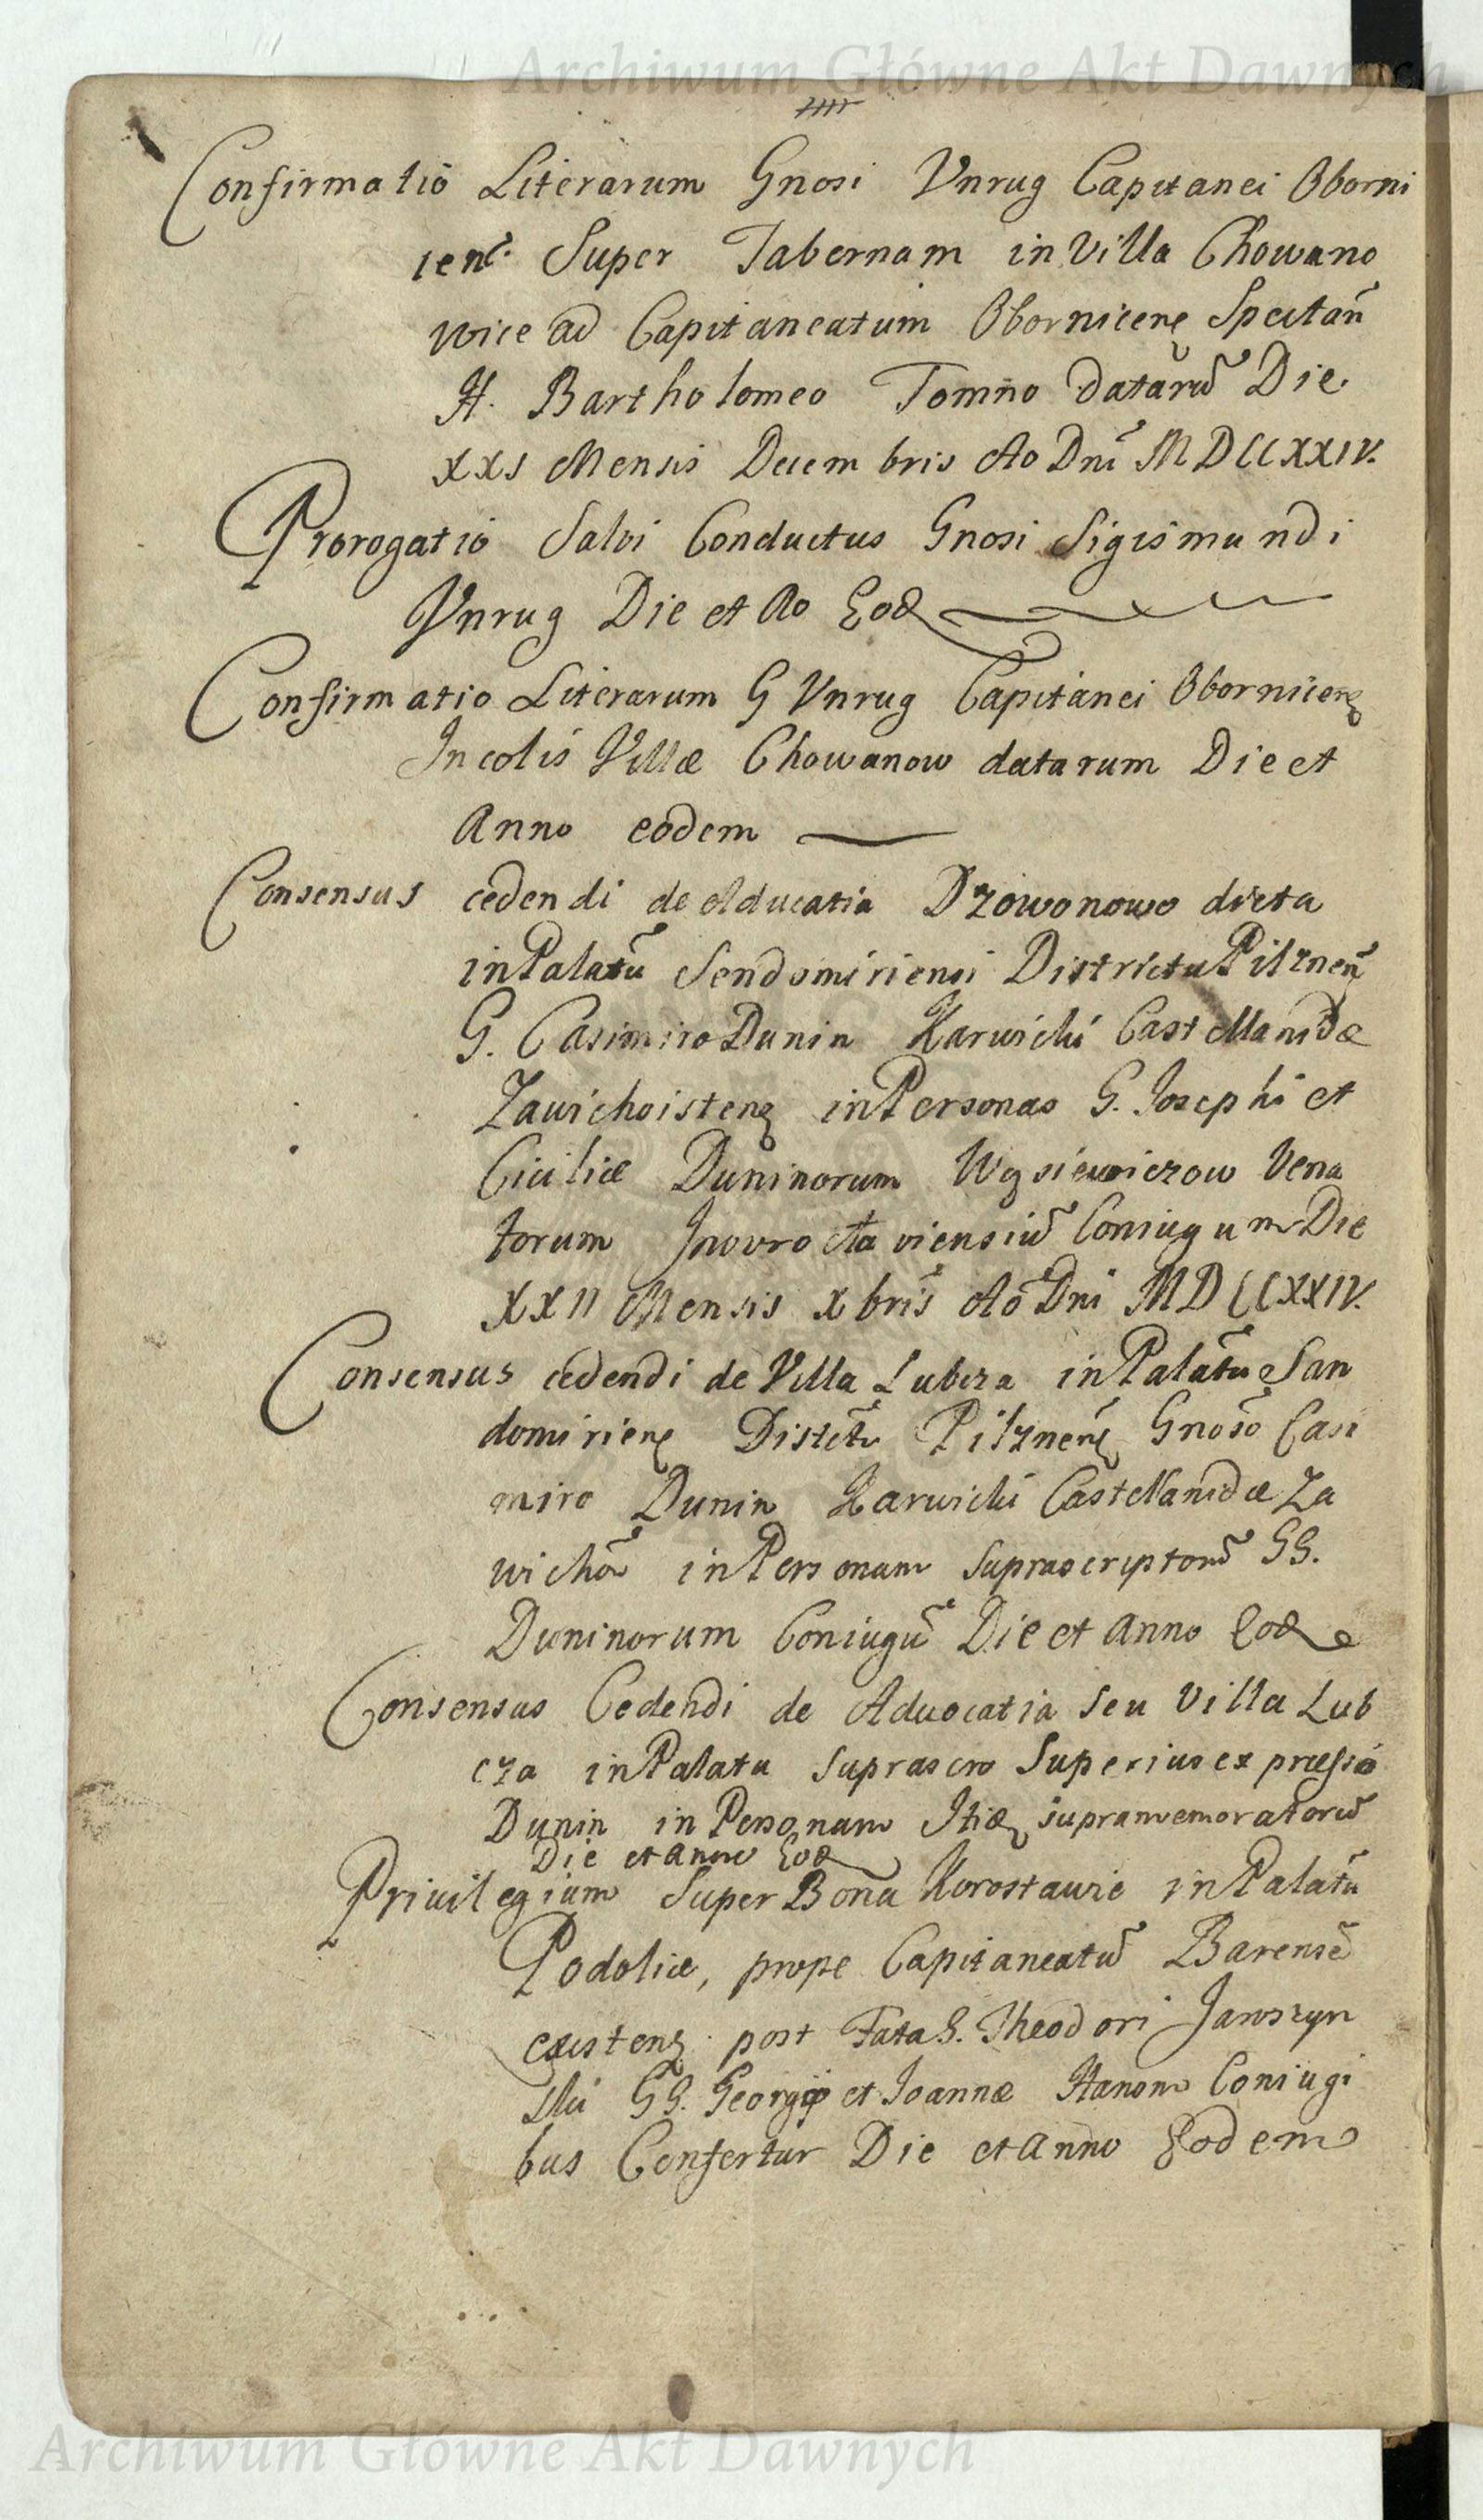 Archiwum Główne Akt Dawnych
Confirmatio Literarum Gnosi Vnrug Capitanei Oborni
cens. Super Tabernam in Villa Chowano
wice ad Capitaneatum Obornicens Spectan̄
H. Bartholomeo Tomno datarū Die
XXI Mensis Decembris Ao Dnī MDCCXXIV.
Prorogatio Salvi Conductus Gnosi Sigismundi
Vnrug Die et Ao Eod
Confirmatio Literarum G Vnrug Capitanei Obornicens
Incolis Villæ Chowanow datarum Die et
Anno eodem
Consensus cedendi de Aducatia Dzowonowo dicta
in Palatū Sendomiriensi Districtu Pilznen̄
G. Casimiro Dunin Karwicki Castellanidæ
Zawichoistens in Personas G. Josephi et
Ciciliæ Duninorum Wąsiewiczow Vena
torum Inowrocłaviensiū Coniugum Die
XXII Mensis Xbris Aō Dni MDCCXXIV.
Consensus cedendi de Villa Lubcza in Palatū San
domiriens Distctu Pilznens Gnosō Casi
miro Dunin Karwicki Castellanidæ Za
wichō in Personam suprascriptorū GG.
Duninorum Coniugū Die et Anno Eod
Consensus Cedendi de Advocatia seu Villa Lub
cza in Palatu suprascro Superius expræsso
Dunin in Personam supramemoratorū
Die et anno Eod
Privilegium Super Bona Korostawie in Palatū
Podoliæ, prope Capitaneatū Barensē
existens post Fata G. Theodori Jaroszyn
ski GG. Georgÿ et Joannæ Hanom Coniugi
bus Confertur Die et Anno Eodem
Archiwum Główne Akt Dawnych